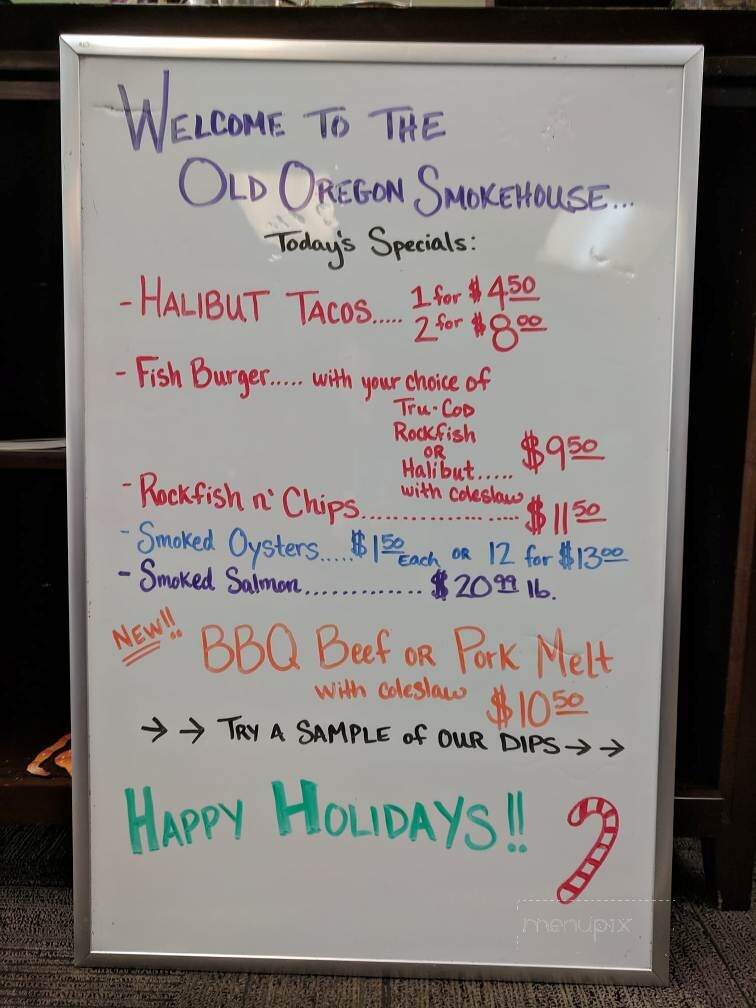 WELCOME TO THE
OLD OREGON SMOKEHOUSE...
Today's Specials:
- HALIBUT TACOS..... 1 for $4.50
2 for $8.00
- Fish Burger..... with your choice of
Tru-Cod
Rockfish
OR
Halibut..... $9.50
with coleslaw
- Rockfish n' Chips.................... $11.50
- Smoked Oysters.....$1.50 Each OR 12 for $13.00
- Smoked Salmon............. $20.99 lb.
NEW!! BBQ Beef OR Pork Melt
with coleslaw $10.50
→ → TRY A SAMPLE of OUR DIPS → →
HAPPY HOLIDAYS!!
menupix